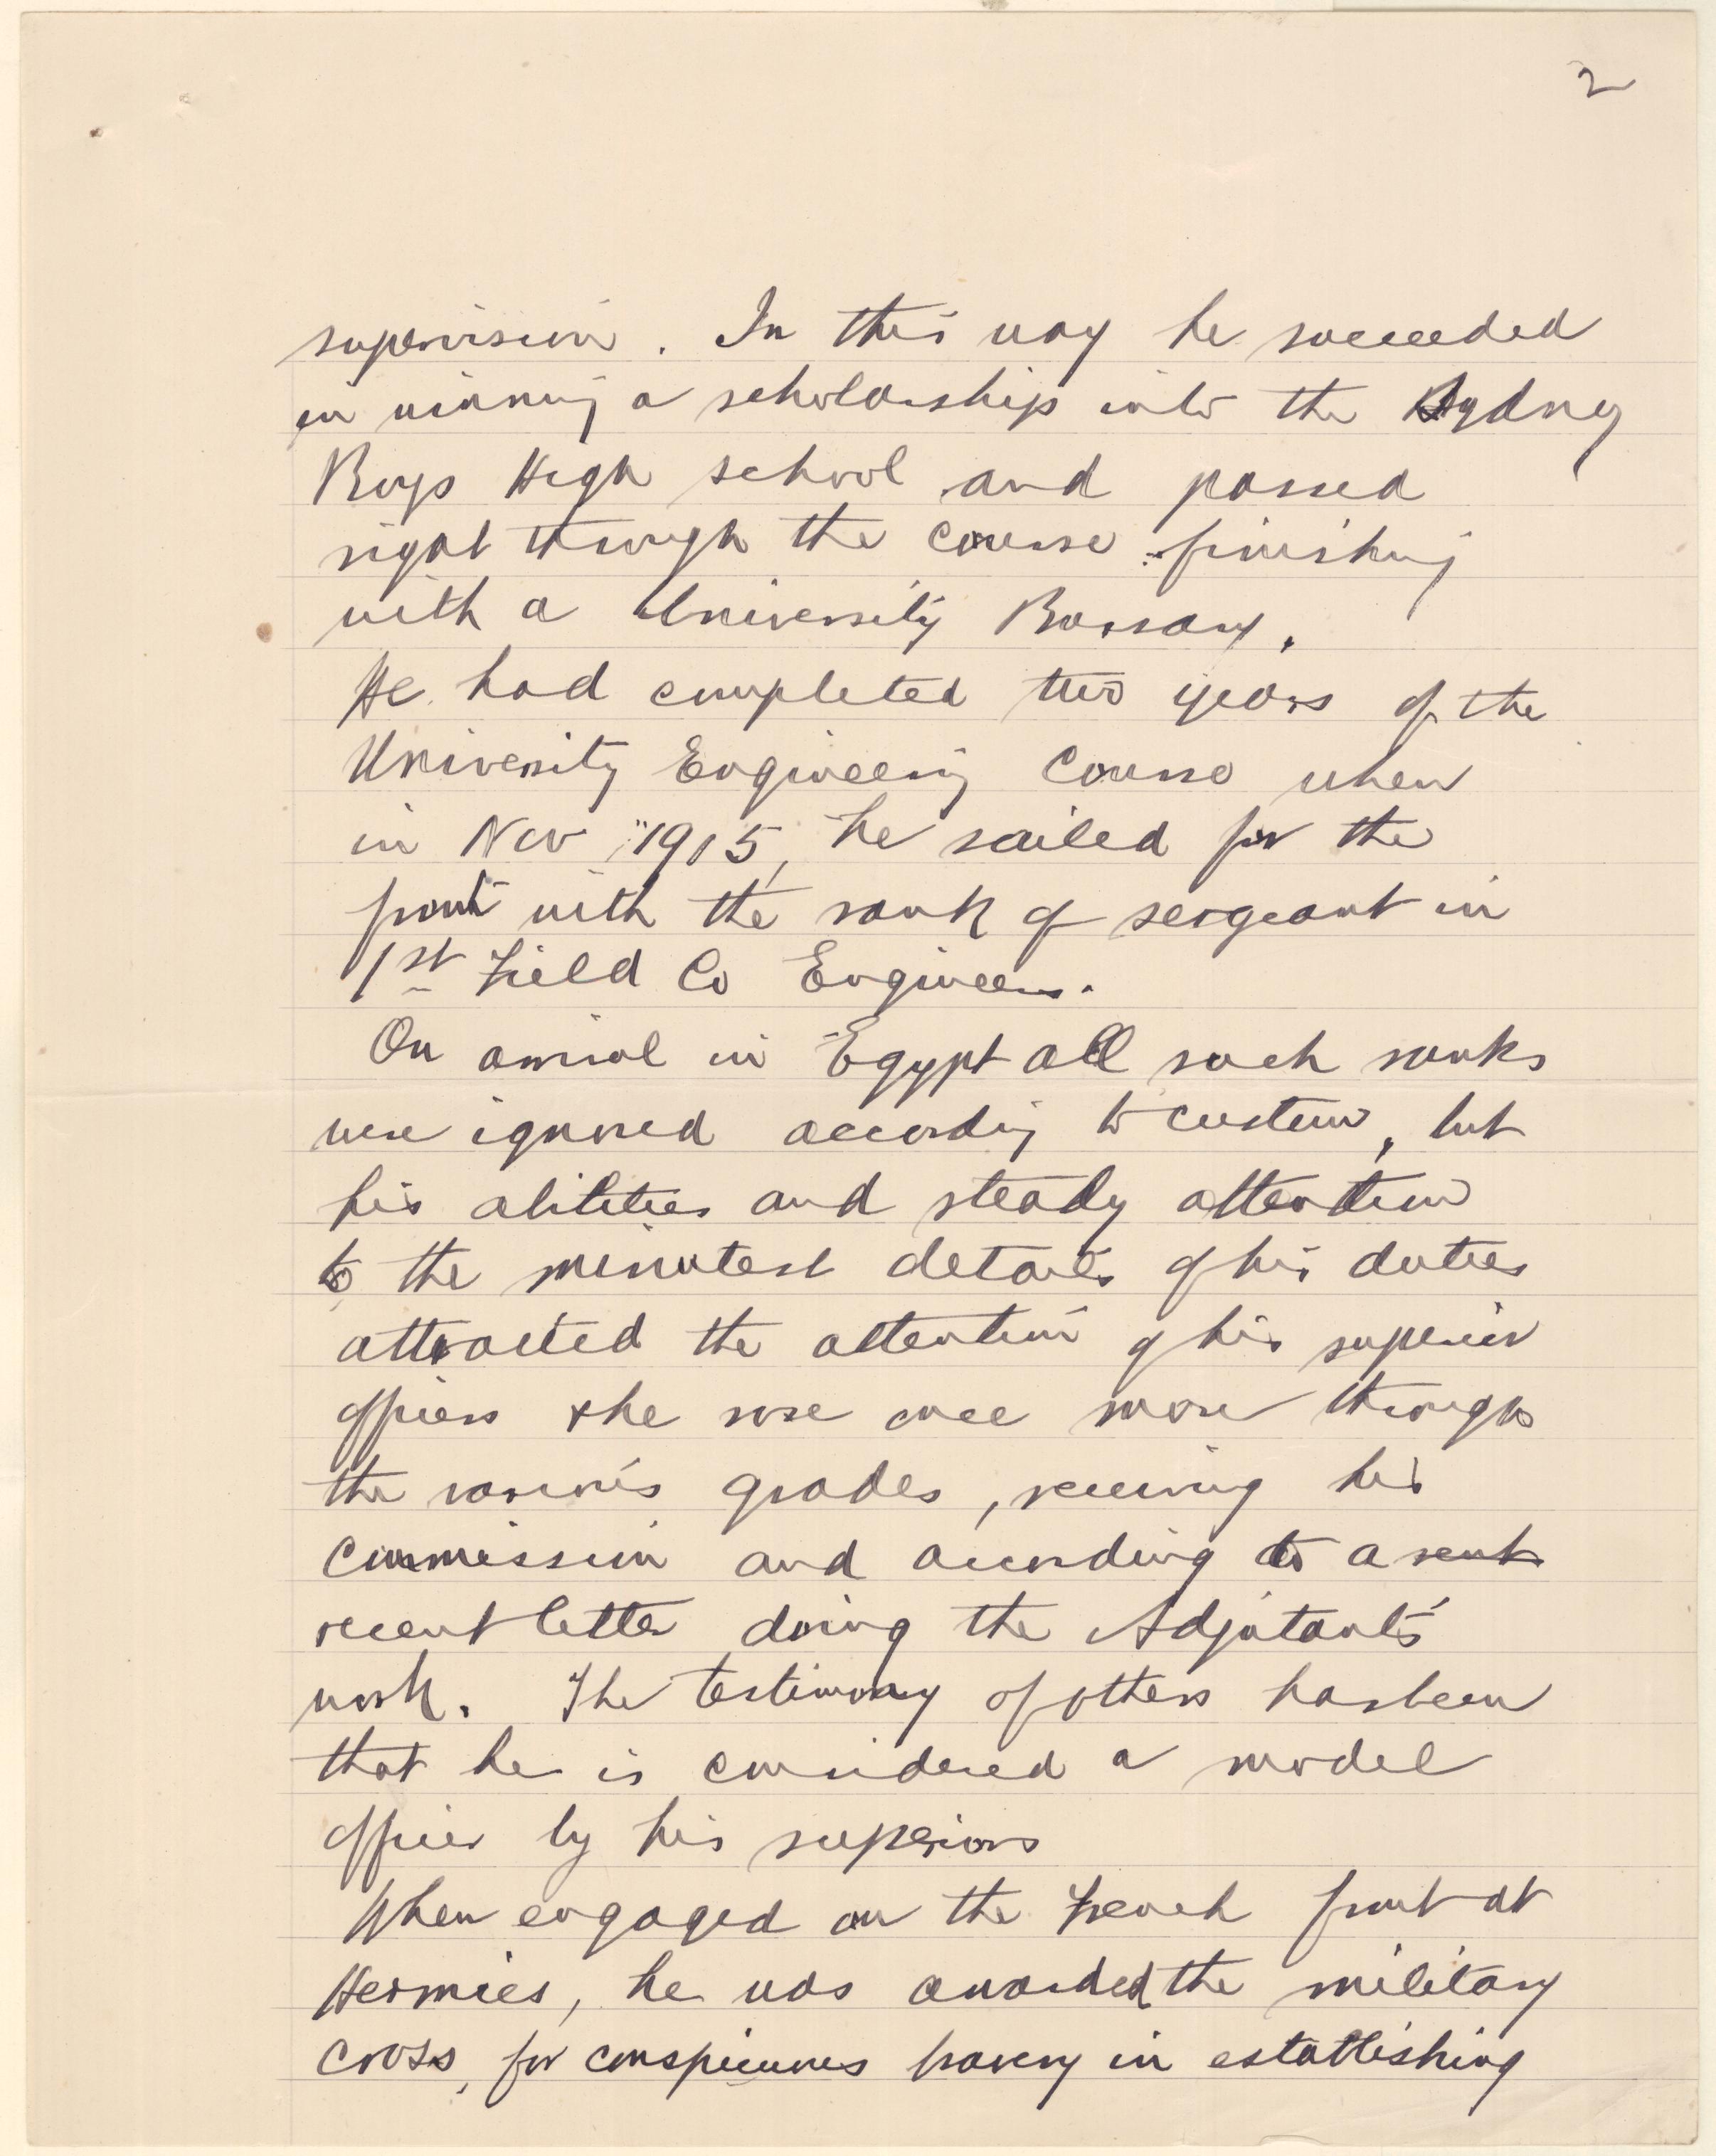 2
supervision. In this way he succeeded
in winning a scholarship into the Sydney
Boys High school and passed
right through the course finishing
with a University Bursary.
He had completed two years of the
University Engineering Course when
in Nov 1915, he sailed for the
front with the rank of sergeant in
1st Field Co Engineers.
On arrival in Egypt all such ranks
were ignored according to custom, but
his abilities and steady attention
to the minutest details of his duties
attracted the attention of his superior
officers & he rose once more through
the various grades, receiving his
Commission and according to a recent
recent letter doing the Adjutant's
work. The testimony of others has been
that he is considered a model
officer by his superiors
When engaged on the French front at
Hermies, he was awarded the military
cross, for conspicuous bravery in establishing